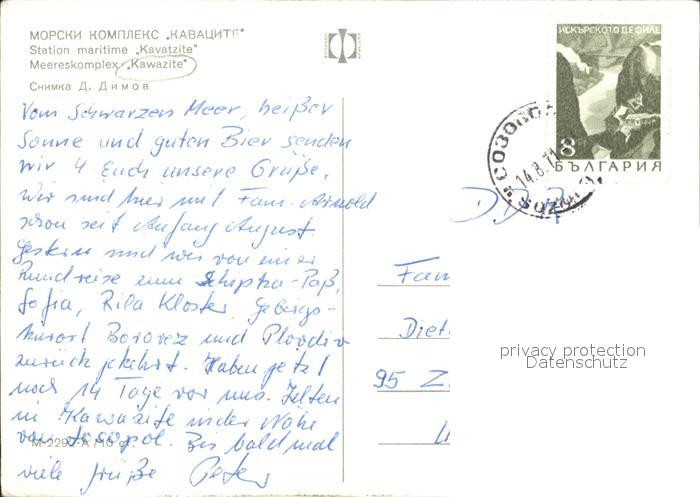 МОРСКИ КОМПЛЕКС „КАВАЦИТЕ"
Station maritime „Kavatzite"
Meereskomplex „Kawazite"
Снимка Д. Димов
Vom Schwarzen Meer, heißer
Sonne und guten Bier senden
wir 4 Euch unsere Grüße.
Wir sind hier mit Fam. Arnold
schon seit Anfang August.
Gestern sind wir von einer
Rundreise zum Schipka-Paß,
Sofia, Rila Kloster, Gebirgs-
kurort Borovez und Plovdiv
zurück gekehrt. Haben jetzt
noch 14 Tage vor uns. Zelten
in Kawazite in der Nähe
von Sosopol. Bis bald mal
M-2292-А /10 gr.
viele Grüße Peter
ИСКЪРСКОТО ДЕФИЛЕ
8
БЪЛГАРИЯ
СОЗОПОЛ
14.8.71
SOZO
DDR
Fam
Diet
95 Z
privacy protection
Datenschutz